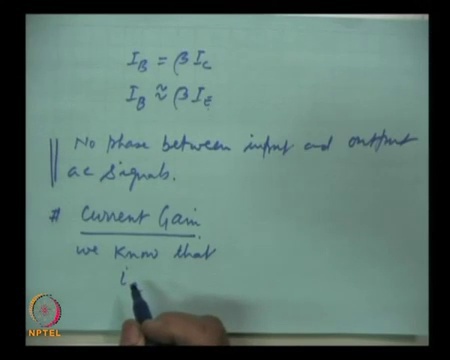 I_B = β I_C
I_B ≈ β I_E
No phase between input and output
ac signals.
# Current Gain
we know that
i
NPTEL